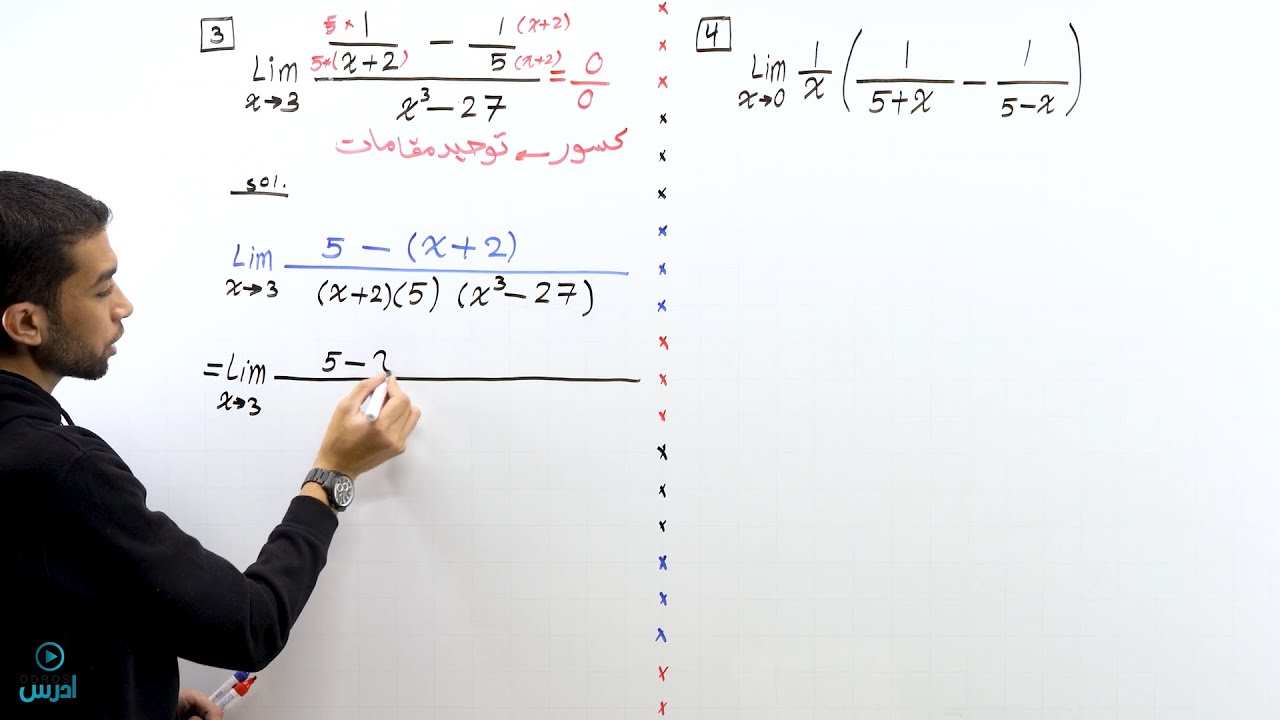 3
Lim x→3 (5*1/5*(x+2) − 1(x+2)/5(x+2)) / (x³−27) = 0/0
كسور ← توحيد مقامات
sol.
Lim x→3 5 − (x+2) / (x+2)(5) (x³−27)
= Lim x→3 5 −
4
Lim x→0 1/x (1/5+x − 1/5−x)
ODROS
ادرس